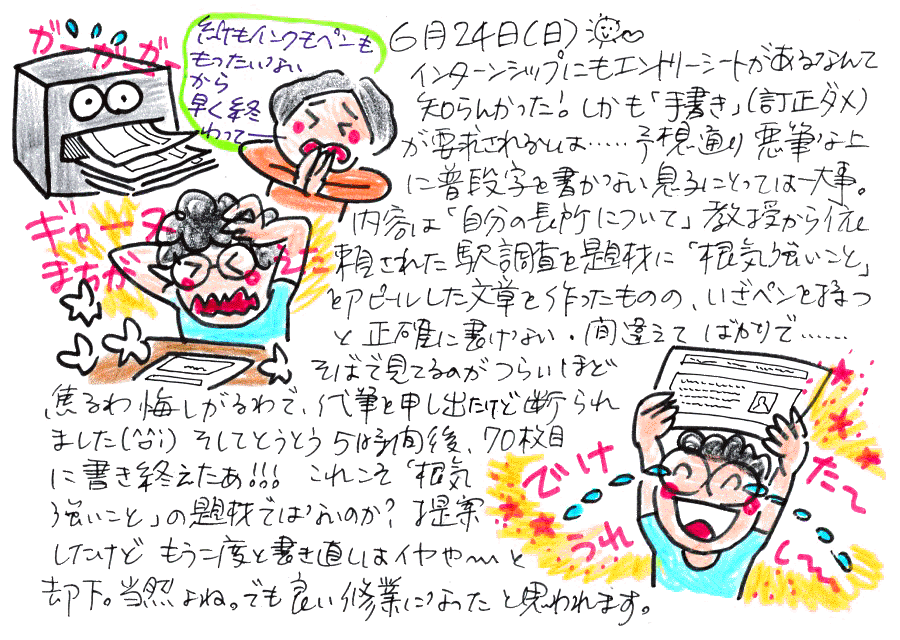 6月24日(日)
インターンシップにもエントリーシートがあるなんて
知らんかった!しかも「手書き」(訂正ダメ)
が要求されるとは……予想通り悪筆な上
に普段字を書かない息子にとっては一大事。
内容は「自分の長所について」教授から依
頼された駅調査を題材に「根気強いこと」
をアピールした文章を作ったものの、いざペンを持つ
と正確に書けない・間違えてばかりで……
そばで見てるのがつらいほど
焦るわ悔しがるわで、代筆を申し出たけど断られ
ました(^^;) そしてとうとう5時間後、70枚目
に書き終えたあ!!! これこそ「根気
強いこと」の題材ではないのか?提案
したけどもう二度と書き直しはイヤや〜と
却下。当然よね。でも良い修業になったと思われます。
ガーガーガー
紙もインクもペンも
もったいない
から
早く終
わってー
ギャーース
まちがえた
でけたー
うれしー